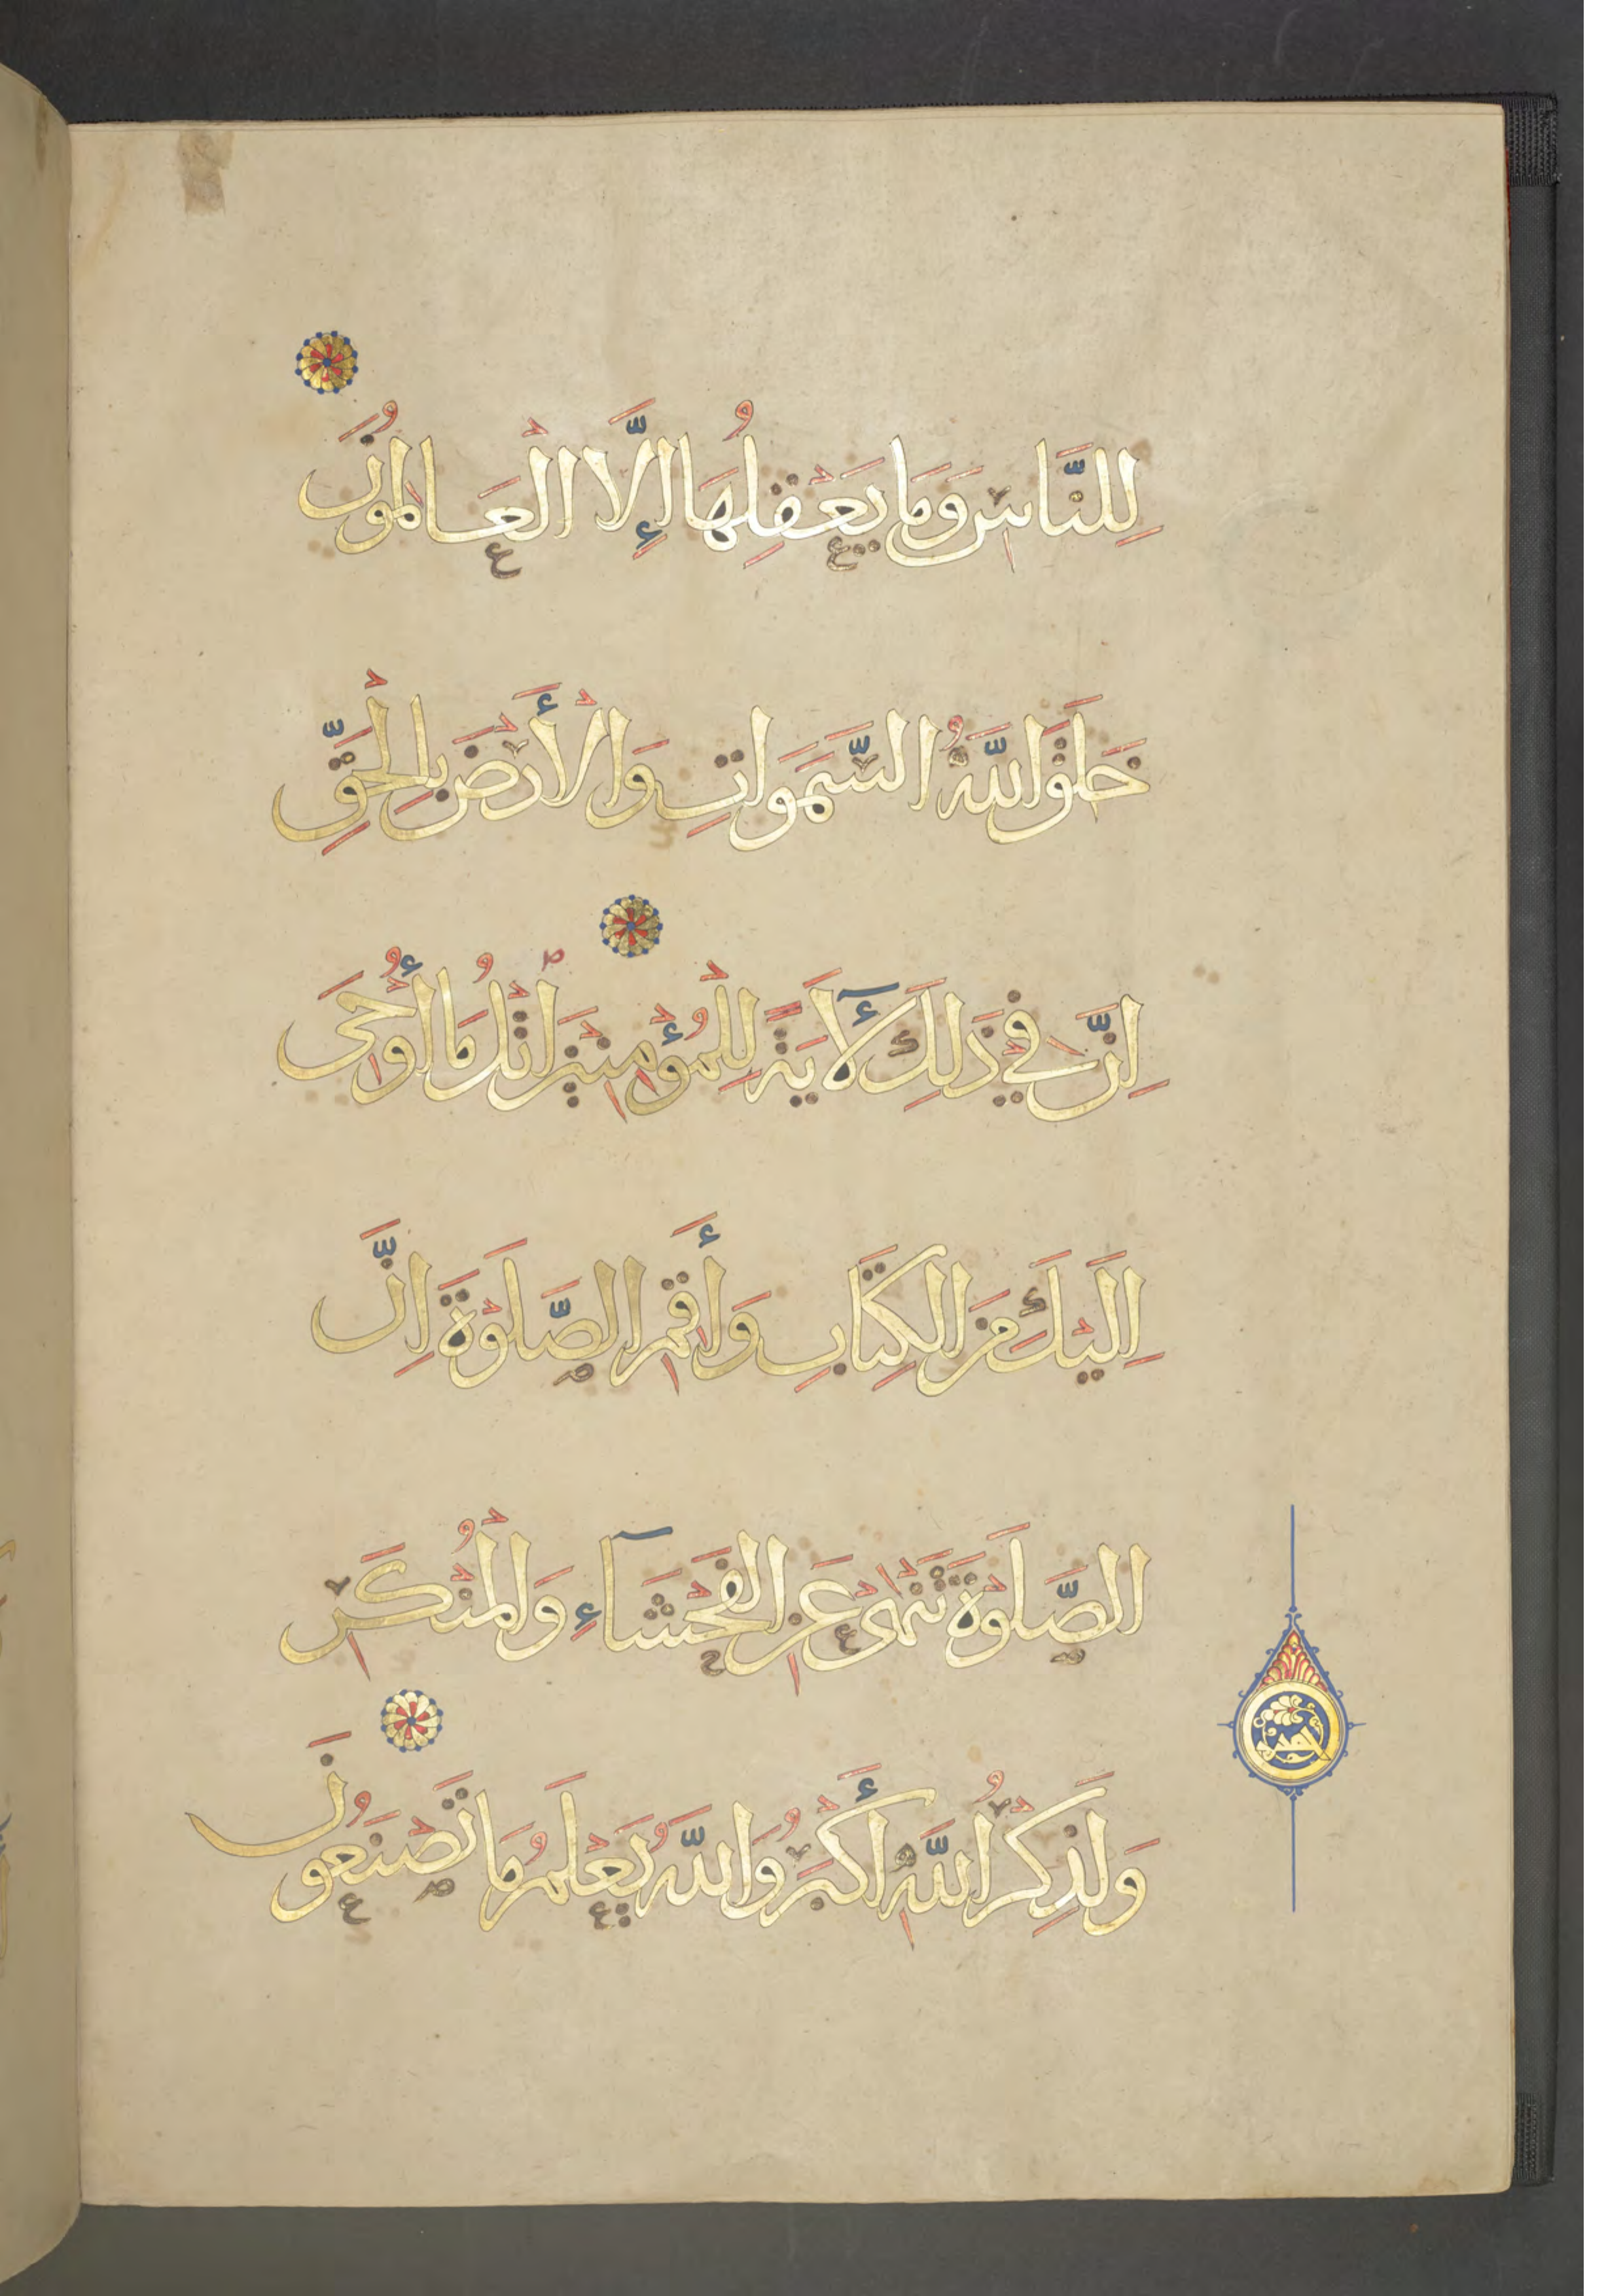 لِلنَّاسِ وَمَا يَعْقِلُهَا إِلَّا الْعَالِمُونَ
خَلَقَ اللَّهُ السَّمَوَاتِ وَالْأَرْضَ بِالْحَقِّ
اِنَّ فِي ذَلِكَ لَأٓيَةً لِلْمُؤْمِنِينَ اتْلُ مَا أُوْحِيَ
اِلَيْكَ مِنَ الْكِتَابِ وَأَقِمِ الصَّلَوةَ اِنَّ
الصَّلَوةَ تَنْهَى عَنِ الْفَحْشَآءِ وَالْمُنْكَرِ
وَلَذِكْرُ اللَّهِ أَكْبَرُ وَاللَّهُ يَعْلَمُ مَا تَصْنَعُونَ